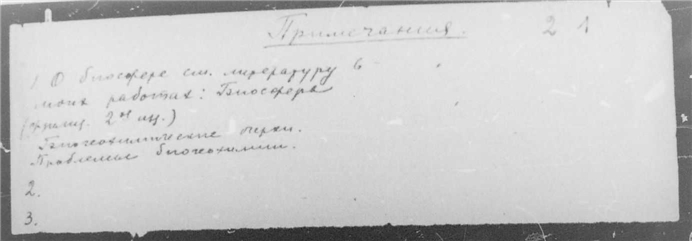 Примечания. 2 1
1) О биосфере см. литературу в
моих работах: Биосфера
(франц. 2ое изд.)
Биогеохимические очерки.
Проблемы биогеохимии.
2.
3.